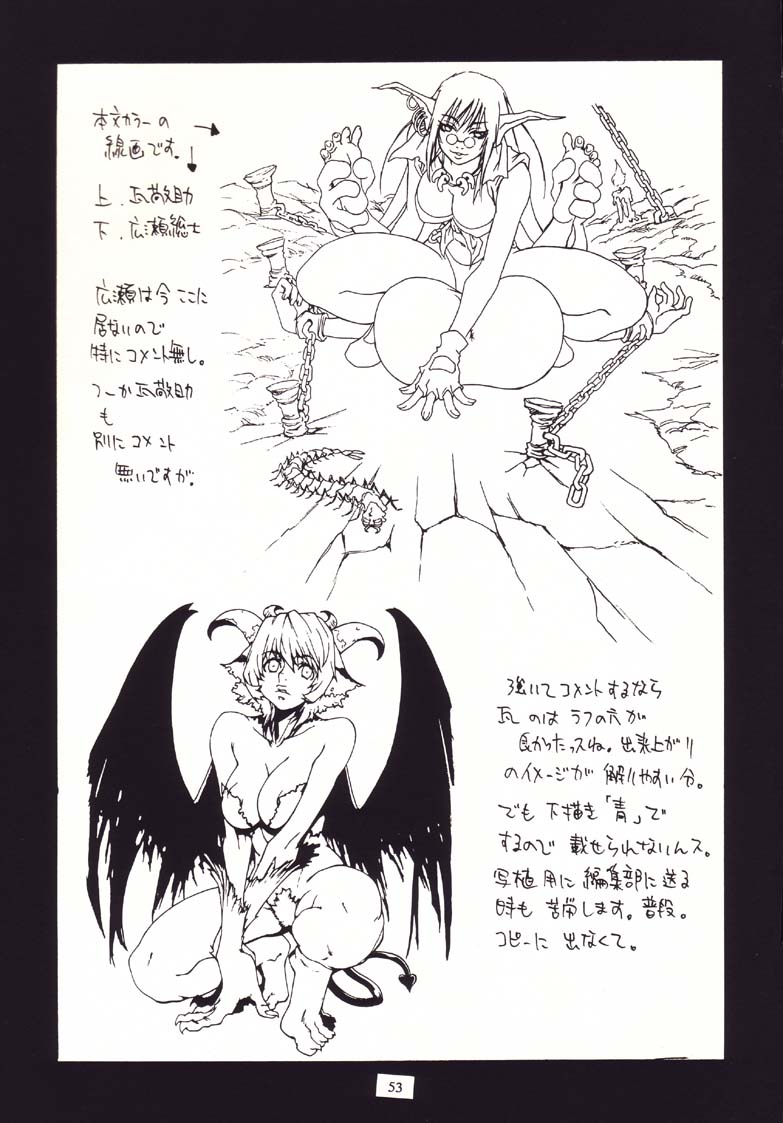 本文カラーの
線画です。
上．瓦敬助
下．広瀬総士
広瀬は今ここに
居ないので
特にコメント無し。
つーか瓦敬助
も
別にコメント
無いですが。
強いてコメントするなら
瓦のは ラフの穴が
良かったっスね。出来上がり
のイメージが 解りやすい分。
でも 下描き「青」で
するので 載せられないんス。
写植用に 編集部に送る
時も 苦労します。普段。
コピーに 出なくて。
53